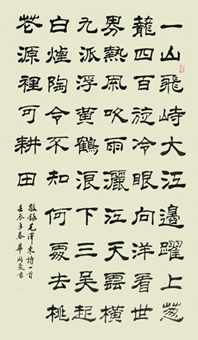 一山飛峙大江邊躍上葱
蘢四百旋冷眼向洋看世
界熱風吹雨灑江天雲橫
九派浮黃鶴浪下三吳起
白煙陶令不知何處去桃
花源裡可耕田
敬錄毛澤東詩一首
壬辰年春